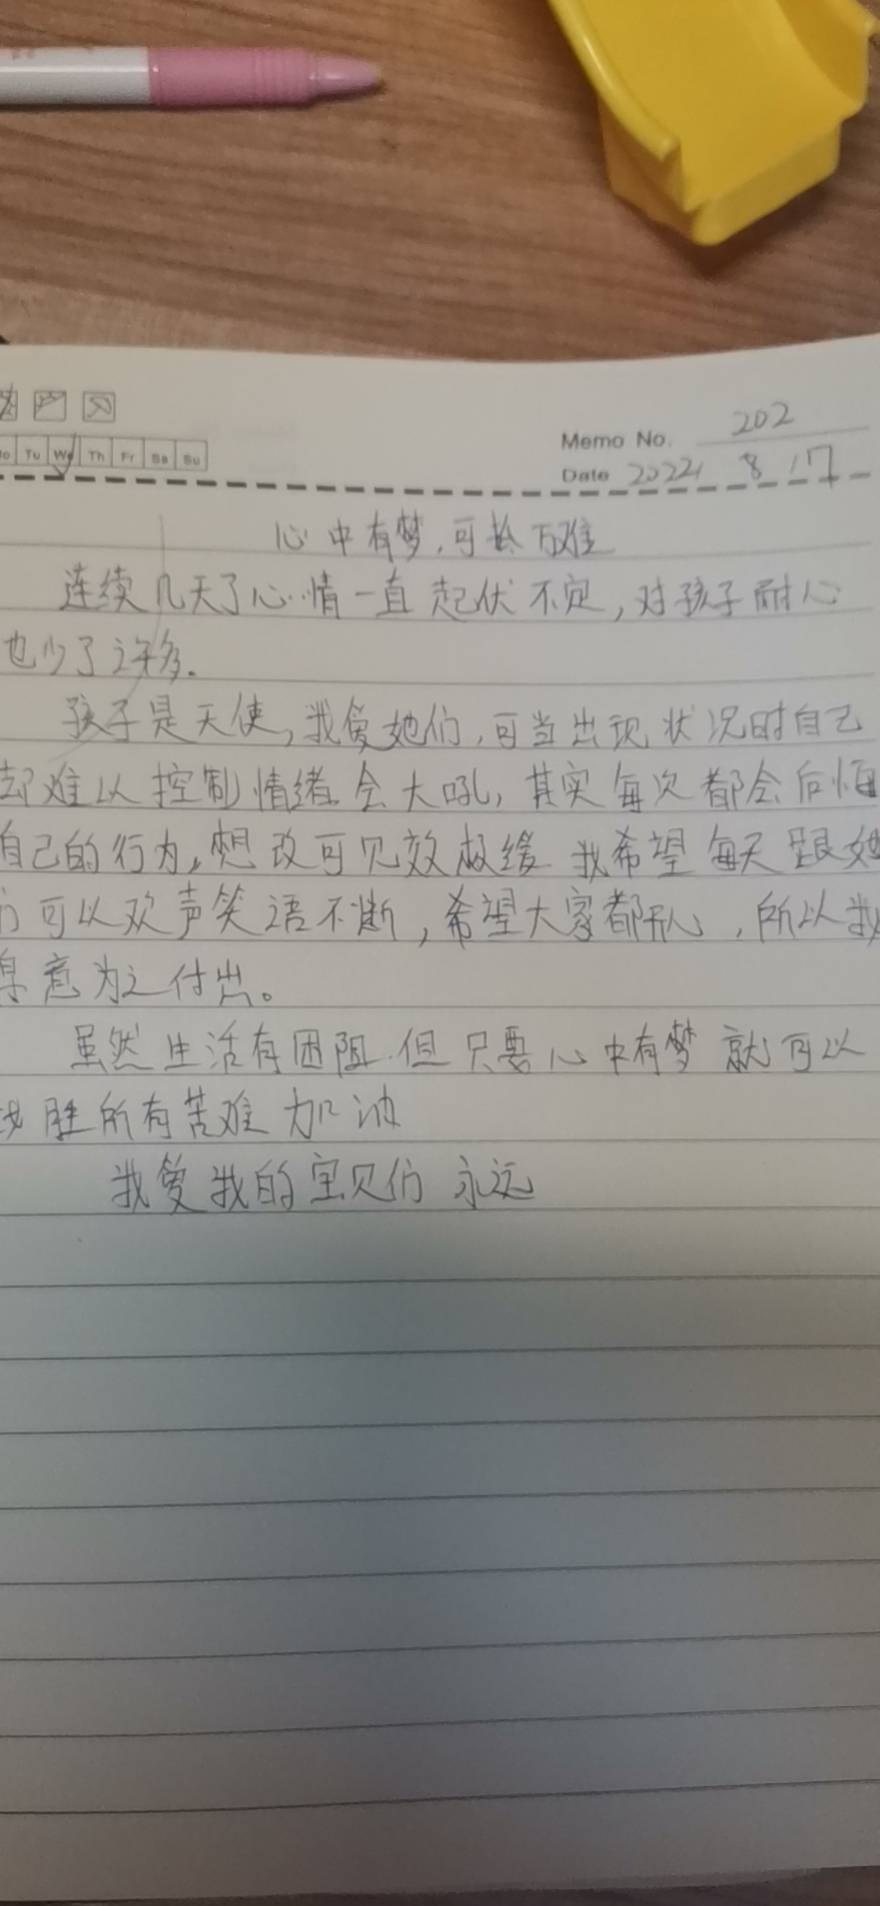 Tu We Th Fr Sa Su
Memo No. 202
Date 2022 8 17
心中有梦,可抵万难
连续几天了心情一直起伏不定,对孩子耐心
也少了许多.
孩子是天使,我爱她们,可当出现状况时自己
却难以控制情绪会大吼,其实每次都会后悔
自己的行为,想改可见效极缓 我希望每天跟她
们可以欢声笑语不断,希望大家都开心,所以我
愿意为之付出。
虽然生活有困阻.但只要心中有梦 就可以
战胜所有苦难 加油
我爱我的宝贝们 永远